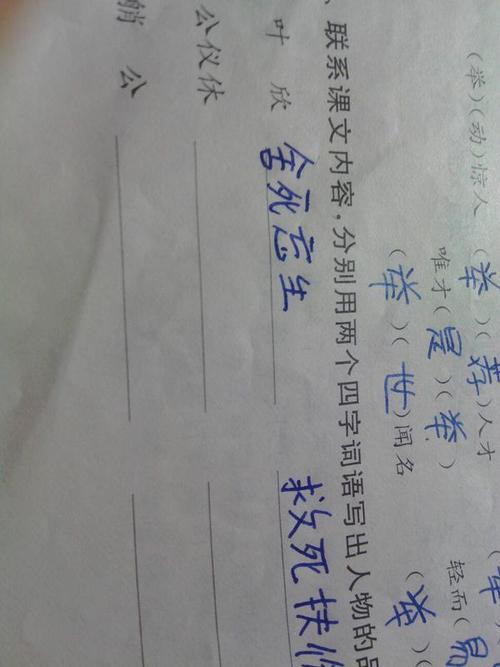 (举)(动)惊人 (举)(荐)人才
唯才(是)(举) 轻而(易
(举)(世)闻名 (举)(
、联系课文内容,分别用两个四字词语写出人物的品
叶欣 舍死忘生 救死扶伤
公仪休
艄公